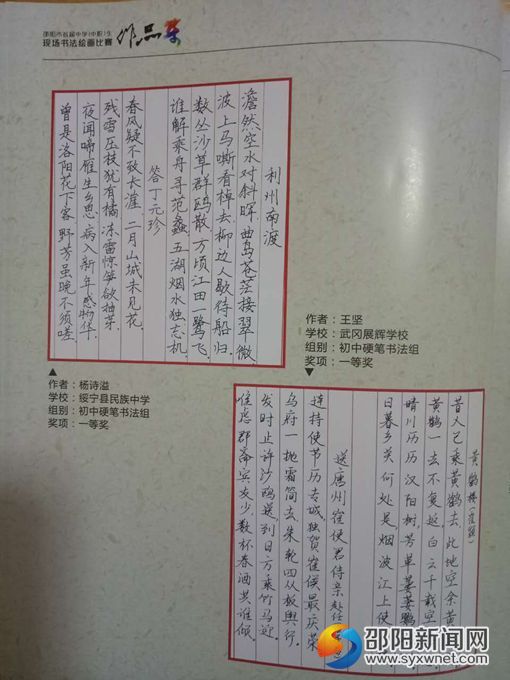 邵阳市首届中学(中职)生
现场书法绘画比赛
作品集
利州南渡
澹然空水对斜晖曲岛苍茫接翠微
波上马嘶看棹去柳边人歇待船归
数丛沙草群鸥散万顷江田一鹭飞
谁解乘舟寻范蠡五湖烟水独忘机
答丁元珍
春风疑不到天涯二月山城未见花
残雪压枝犹有橘冻雷惊笋欲抽芽
夜闻啼雁生乡思病入新年感物华
曾是洛阳花下客野芳虽晚不须嗟
作者：王坚
学校：武冈展辉学校
组别：初中硬笔书法组
奖项：一等奖
作者：杨诗溢
学校：绥宁县民族中学
组别：初中硬笔书法组
奖项：一等奖
黄鹤楼（崔颢）
昔人已乘黄鹤去此地空余黄
黄鹤一去不复返白云千载空
晴川历历汉阳树芳草萋萋鹦
日暮乡关何处是烟波江上使
送唐州崔使君侍亲赴任
连持使节历专城独贺崔侯最庆荣
乌府一抛霜简去朱轮四从板舆行
发时止许沙鸥送到日方乘竹马迎
惟虑郡斋宾友少数杯春酒共谁倾
邵阳新闻网
www.syxwnet.com